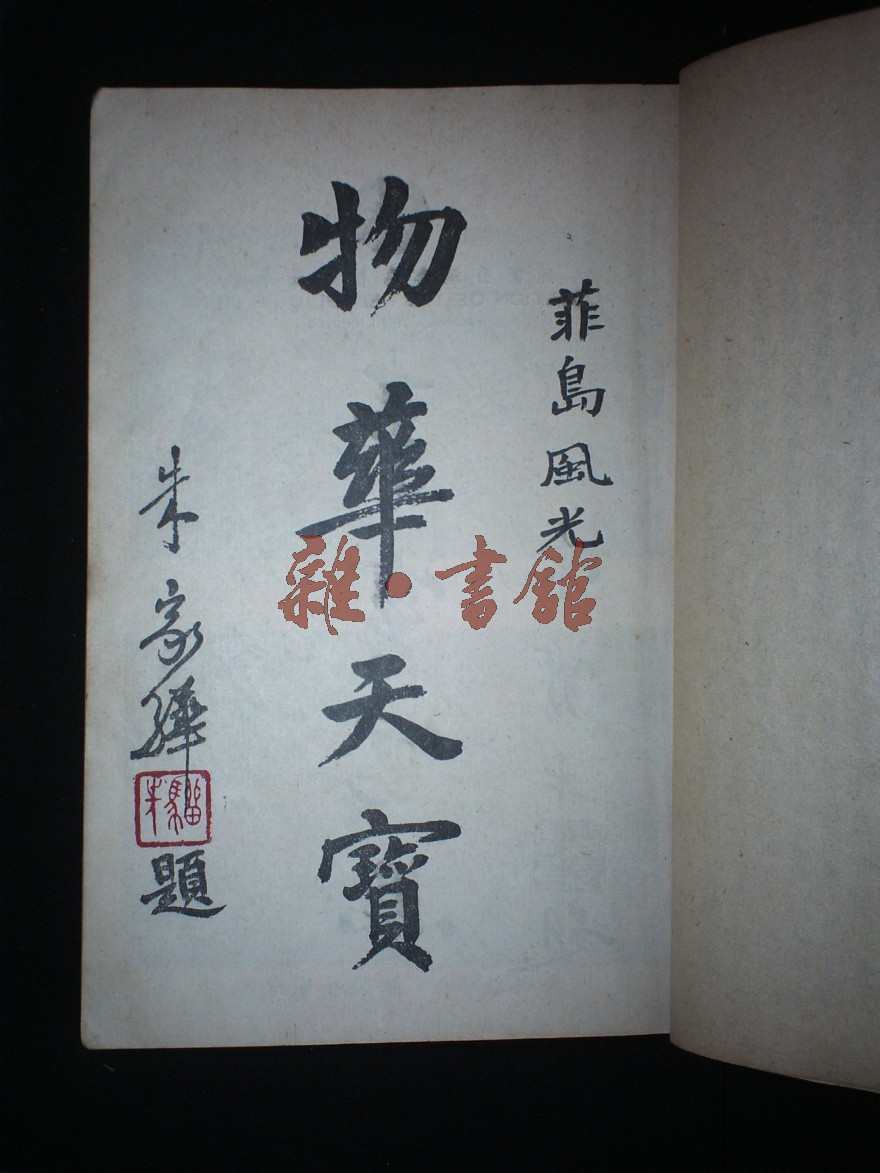 菲島風光
物華天寶
朱家驊
題
雜·書館